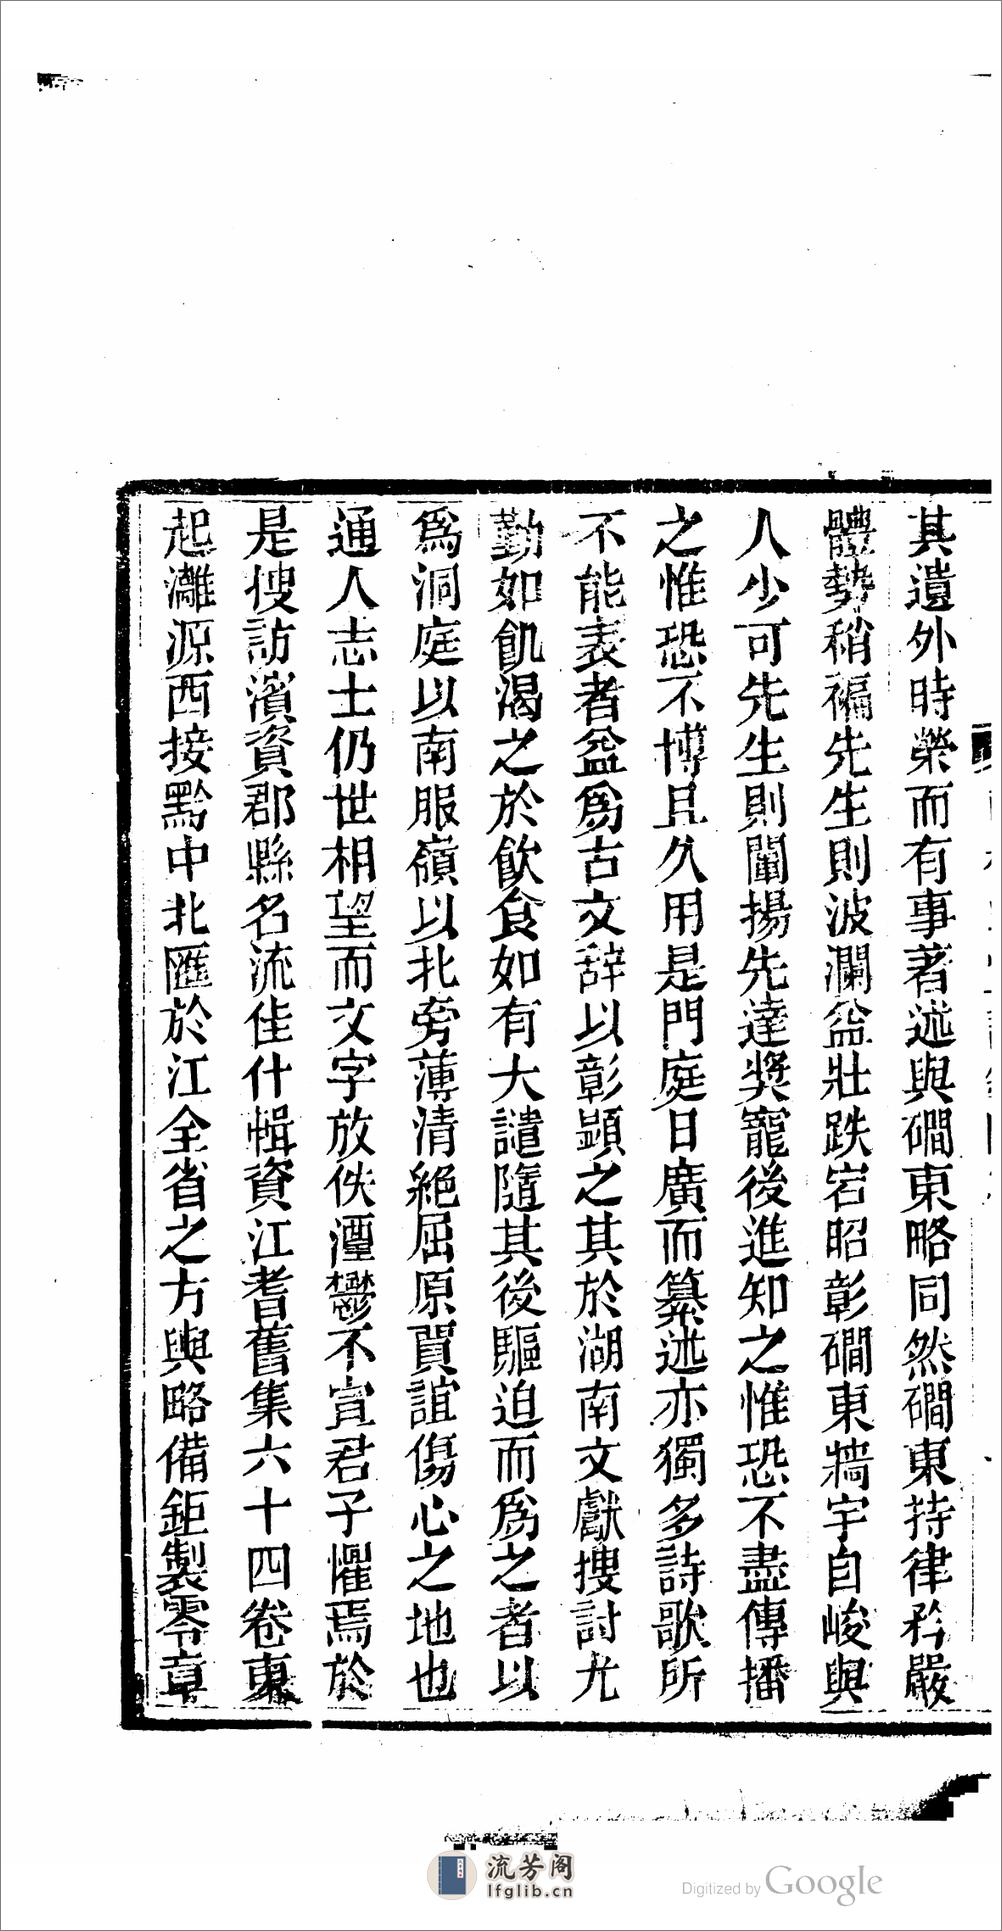 其遺外時榮而有事著述與磵東略同然磵東持律矜嚴
體勢稍褊先生則波瀾益壯跌宕昭彰磵東牆宇自峻與
人少可先生則闡揚先達獎寵後進知之惟恐不盡傳播
之惟恐不博且久用是門庭日廣而纂述亦獨多詩歌所
不能表者益爲古文辭以彰顯之其於湖南文獻搜討尤
勤如飢渴之於飲食如有大譴隨其後驅迫而爲之者以
爲洞庭以南服嶺以北旁薄清絕屈原賈誼傷心之地也
通人志士仍世相望而文字放佚湮鬱不宣君子懼焉於
是搜訪濱資郡縣名流佳什輯資江耆舊集六十四卷東
起灕源西接黔中北匯於江全省之方輿略備鉅製零章
流芳阁
lfglib.cn
Digitized by Google